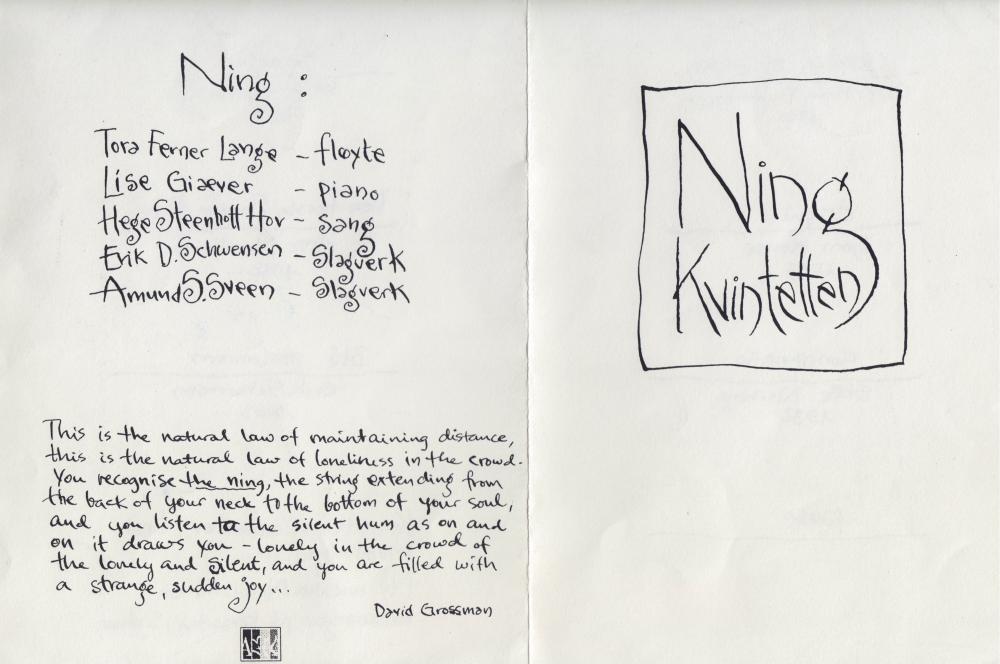 Ning :
Tora Ferner Lange – fløyte
Lise Giæver – piano
Hege Steenhoff Hov – sang
Erik D. Schwensen – Slagverk
Amund S. Sveen – Slagverk
This is the natural law of maintaining distance,
this is the natural law of loneliness in the crowd.
You recognise the ning, the string extending from
the back of your neck to the bottom of your soul,
and you listen to the silent hum as on and
on it draws you – lonely in the crowd of
the lonely and silent, and you are filled with
a strange, sudden joy...
David Grossman
Ning
Kvintetten